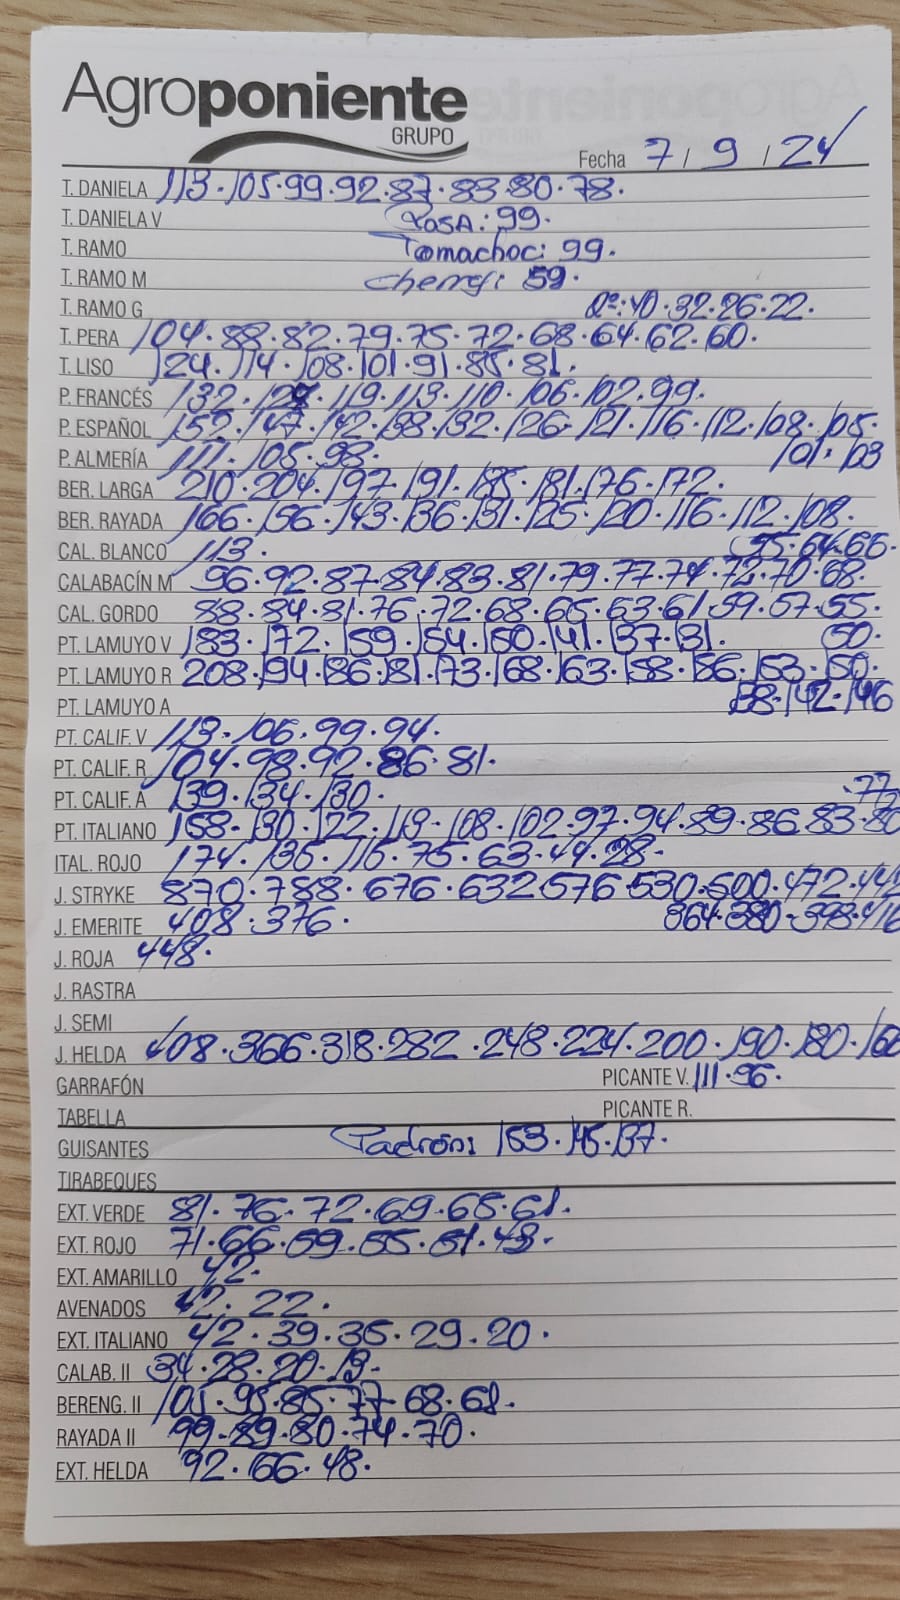 Agroponiente
GRUPO
Fecha 7 / 9 / 24
T. DANIELA 113 · 105 · 99 · 92 · 87 · 83 · 80 · 78 ·
T. DANIELA V Rosa: 99 ·
T. RAMO Tomachoc: 99 ·
T. RAMO M Cherry: 59 ·
T. RAMO G 2ª: 40 · 32 · 26 · 22 ·
T. PERA 104 · 88 · 82 · 79 · 75 · 72 · 68 · 64 · 62 · 60 ·
T. LISO 124 · 114 · 108 · 101 · 91 · 85 · 81 ·
P. FRANCÉS 132 · 127 · 119 · 113 · 110 · 106 · 102 · 99 ·
P. ESPAÑOL 152 · 147 · 142 · 138 · 132 · 126 · 121 · 116 · 112 · 108 · 105 ·
P. ALMERÍA 111 · 105 · 98 · 101 · 103
BER. LARGA 210 · 204 · 197 · 191 · 185 · 181 · 176 · 172 ·
BER. RAYADA 166 · 156 · 143 · 136 · 131 · 125 · 120 · 116 · 112 · 108 ·
CAL. BLANCO 113 · 64 · 66 ·
CALABACÍN M 96 · 92 · 87 · 84 · 83 · 81 · 79 · 77 · 74 · 72 · 70 · 68 ·
CAL. GORDO 88 · 84 · 81 · 76 · 72 · 68 · 65 · 63 · 61 · 59 · 57 · 55 ·
PT. LAMUYO V 183 · 172 · 159 · 154 · 150 · 141 · 137 · 131 · 50 ·
PT. LAMUYO R 208 · 194 · 186 · 181 · 173 · 168 · 163 · 158 · 156 · 153 · 150 ·
PT. LAMUYO A 138 · 142 · 146
PT. CALIF. V 113 · 106 · 99 · 94 ·
PT. CALIF. R 104 · 98 · 92 · 86 · 81 ·
PT. CALIF. A 139 · 134 · 130 · 77
PT. ITALIANO 158 · 130 · 122 · 113 · 108 · 102 · 97 · 94 · 89 · 86 · 83 · 80
ITAL. ROJO 174 · 136 · 116 · 75 · 63 · 44 · 28 ·
J. STRYKE 870 · 788 · 676 · 632 · 576 · 530 · 500 · 472 · 442
J. EMERITE 408 · 376 · 364 · 380 · 398 · 416
J. ROJA 448 ·
J. RASTRA
J. SEMI
J. HELDA 408 · 366 · 318 · 282 · 248 · 224 · 200 · 190 · 180 · 166
GARRAFÓN PICANTE V. 111 · 96 ·
TABELLA PICANTE R.
GUISANTES Padrón: 153 · 145 · 137 ·
TIRABEQUES
EXT. VERDE 81 · 76 · 72 · 69 · 65 · 61 ·
EXT. ROJO 71 · 66 · 59 · 55 · 51 · 48 ·
EXT. AMARILLO 42 ·
AVENADOS 42 · 22 ·
EXT. ITALIANO 42 · 39 · 35 · 29 · 20 ·
CALAB. II 34 · 28 · 20 · 13 ·
BERENG. II 105 · 95 · 85 · 77 · 68 · 61 ·
RAYADA II 99 · 89 · 80 · 74 · 70 ·
EXT. HELDA 92 · 66 · 48 ·